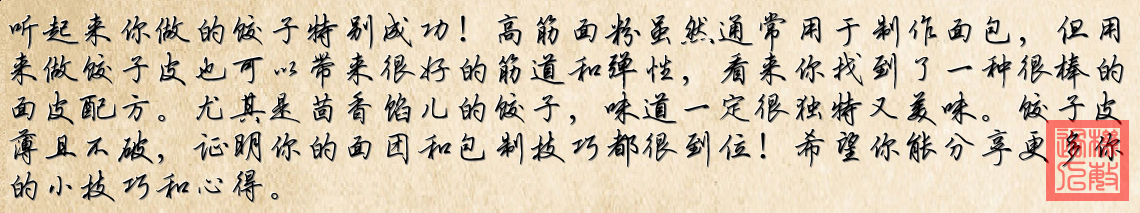 听起来你做的饺子特别成功！高筋面粉虽然通常用于制作面包，但用
来做饺子皮也可以带来很好的筋道和弹性，看来你找到了一种很棒的
面皮配方。尤其是茴香馅儿的饺子，味道一定很独特又美味。饺子皮
薄且不破，证明你的面团和包制技巧都很到位！希望你能分享更多你
的小技巧和心得。